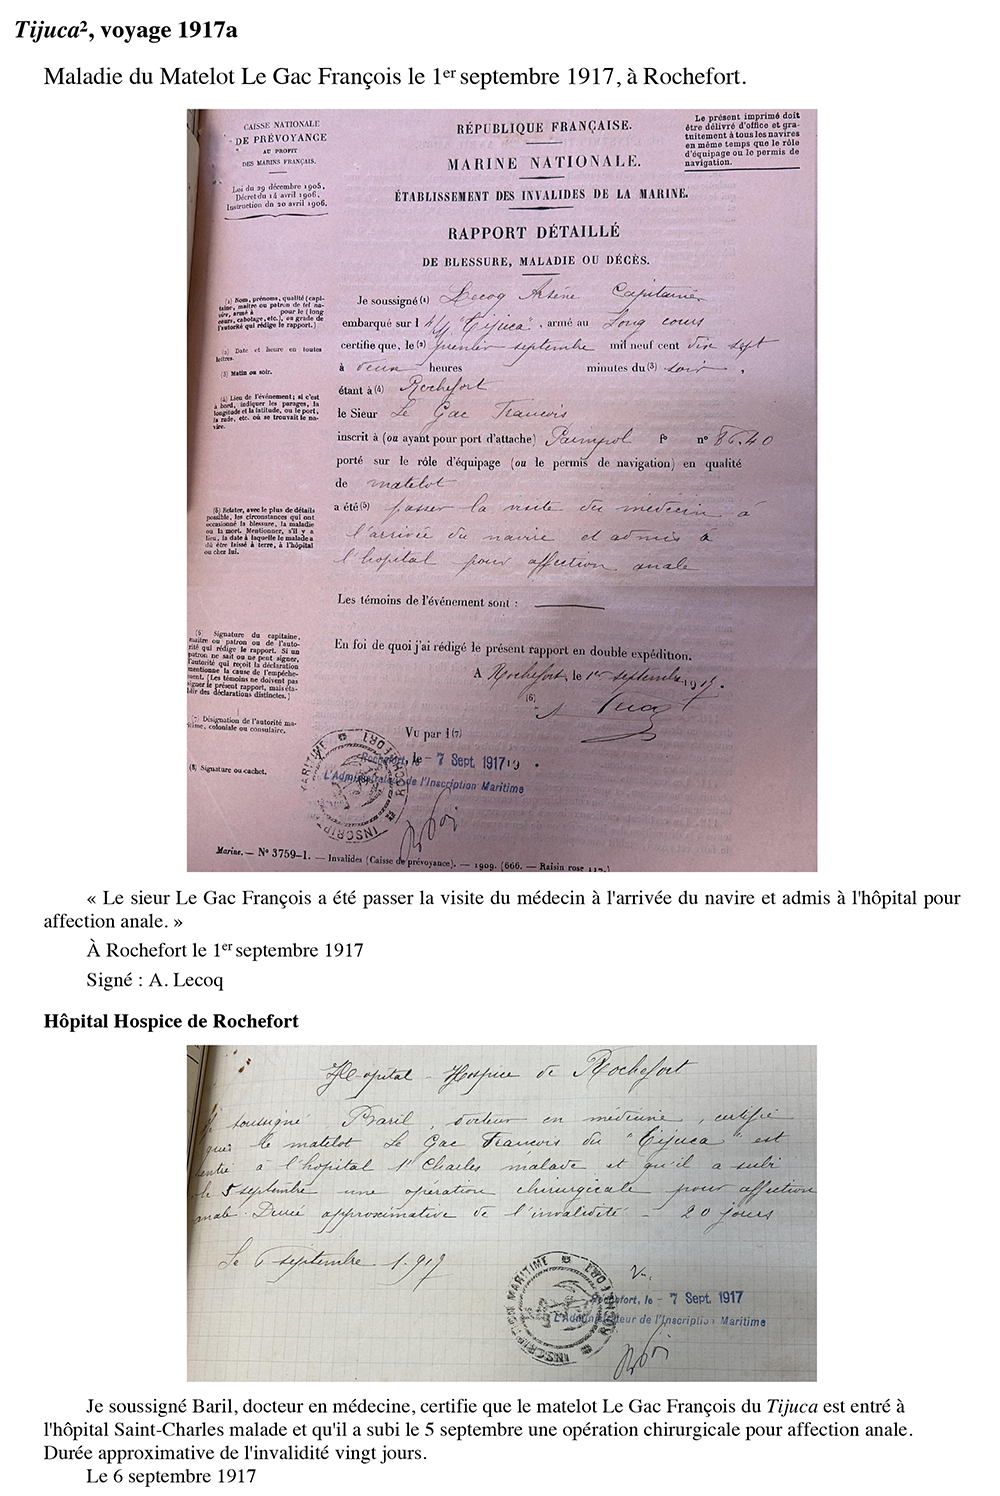 Tijuca², voyage 1917a
Maladie du Matelot Le Gac François le 1er septembre 1917, à Rochefort.
CAISSE NATIONALE
DE PRÉVOYANCE
AU PROFIT
DES MARINS FRANÇAIS.
Loi du 29 décembre 1905,
Décret du 14 avril 1906,
Instruction du 20 avril 1906.
RÉPUBLIQUE FRANÇAISE.
MARINE NATIONALE.
ÉTABLISSEMENT DES INVALIDES DE LA MARINE.
RAPPORT DÉTAILLÉ
DE BLESSURE, MALADIE OU DÉCÈS.
Le présent imprimé doit
être délivré d'office et gra-
tuitement à tous les navires
en même temps que le rôle
d'équipage ou le permis de
navigation.
(1) Nom, prénoms, qualité (capi-
taine, maître ou patron de tel na-
vire, armé à pour le (long
cours, cabotage, etc.), ou grade de
l'autorité qui rédige le rapport.)
(2) Date et heure en toutes
lettres.
(3) Matin ou soir.
(4) Lieu de l'événement; si c'est
à bord, indiquer les parages, la
longitude et la latitude, ou le port,
la rade, etc. où se trouvait le na-
vire.
(5) Relater, avec le plus de détails
possible, les circonstances qui ont
occasionné la blessure, la maladie
ou la mort. Mentionner, s'il y a
lieu, la date à laquelle le malade a
dû être laissé à terre, à l'hôpital
ou chez lui.
(6) Signature du capitaine,
maître ou patron ou de l'auto-
rité qui rédige le rapport. Si un
patron ne sait ou ne peut signer,
l'autorité qui reçoit la déclaration
mentionne la cause de l'empêche-
ment. (Les témoins ne doivent pas
signer le présent rapport, mais éta-
blir des déclarations distinctes.)
(7) Désignation de l'autorité ma-
ritime, coloniale ou consulaire.
(8) Signature ou cachet.
Je soussigné (1) Lecoq Arsène Capitaine
embarqué sur l 4/M "Tijuca", armé au Long cours
certifie que, le (2) premier septembre mil neuf cent dix sept
à deux heures minutes du (3) soir,
étant à (4) Rochefort
le Sieur Le Gac Francois
inscrit à (ou ayant pour port d'attache) Paimpol f° n° 8640
porté sur le rôle d'équipage (ou le permis de navigation) en qualité
de matelot
a été (5) passer la visite du médecin à
l'arrivée du navire et admis à
l'hopital pour affection anale
Les témoins de l'événement sont :
En foi de quoi j'ai rédigé le présent rapport en double expédition.
A Rochefort, le 1er septembre 1917.
(6)
Vu par l (7)
Rochefort, le - 7 Sept. 1917 19 .
L'Administrateur de l'Inscription Maritime
INSCRIPTION MARITIME ROCHEFORT
Marine. — N° 3759-1. — Invalides (Caisse de prévoyance). — 1909. (666. — Raisin rose
« Le sieur Le Gac François a été passer la visite du médecin à l'arrivée du navire et admis à l'hôpital pour
affection anale. »
À Rochefort le 1er septembre 1917
Signé : A. Lecoq
Hôpital Hospice de Rochefort
Hopital - Hospice de Rochefort
soussigné Baril, docteur en médecine, certifie
que le matelot Le Gac Francois du "Tijuca" est
entré à l'hopital St Charles malade et qu'il a subi
le 5 septembre une opération chirurgicale pour affection
anale. Durée approximative de l'invalidité - 20 jours
Le 6 septembre 1917
Vu.
Rochefort, le - 7 Sept. 1917
L'Administrateur de l'Inscription Maritime
INSCRIPTION MARITIME ROCHEFORT
Je soussigné Baril, docteur en médecine, certifie que le matelot Le Gac François du Tijuca est entré à
l'hôpital Saint-Charles malade et qu'il a subi le 5 septembre une opération chirurgicale pour affection anale.
Durée approximative de l'invalidité vingt jours.
Le 6 septembre 1917